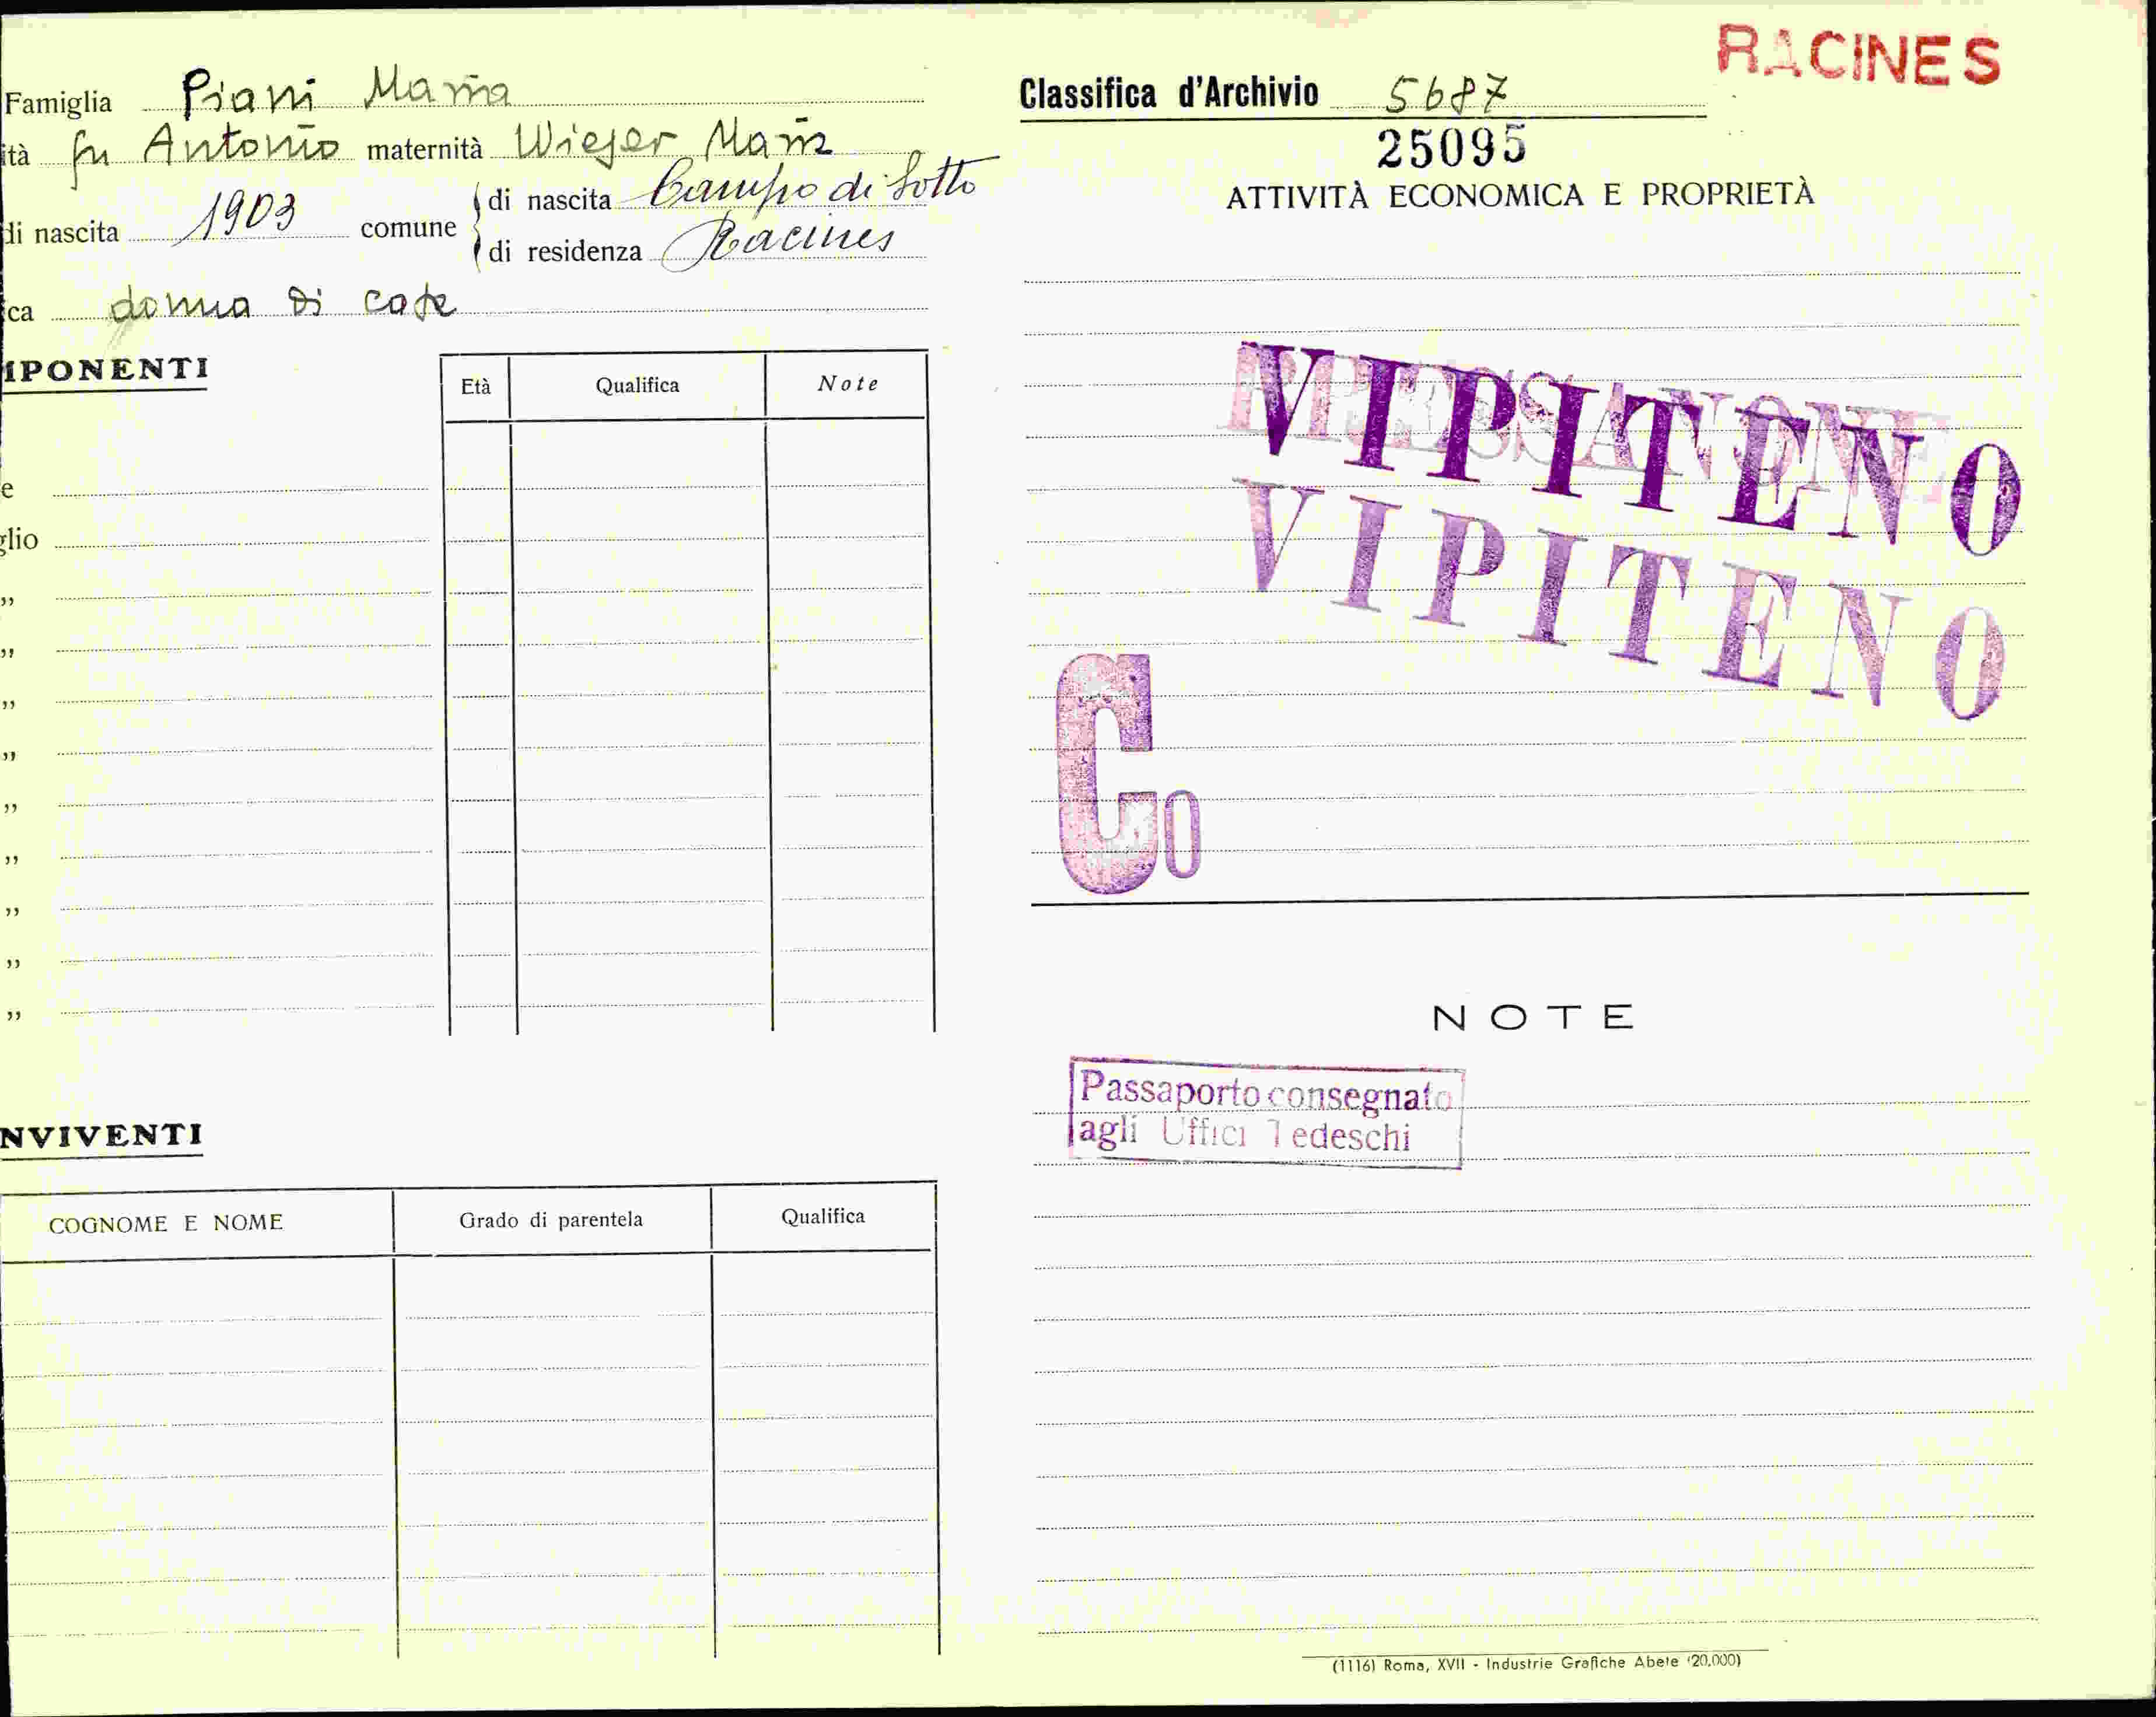 Famiglia Piani Maria
ità fu Antonio maternità Wieser Maria
di nascita 1903 comune
di nascita Campo di Sotto
di residenza Racines
ca donna di casa
IPONENTI
Età Qualifica Note
e
glio
„
„
„
„
„
„
„
„
„
NVIVENTI
COGNOME E NOME Grado di parentela Qualifica
RACINES
Classifica d'Archivio 5687
25095
ATTIVITÀ ECONOMICA E PROPRIETÀ
VIPITENO
VIPITENO
Co
NOTE
Passaporto consegnato
agli Uffici Tedeschi
(1116) Roma, XVII - Industrie Grafiche Abete (20.000)